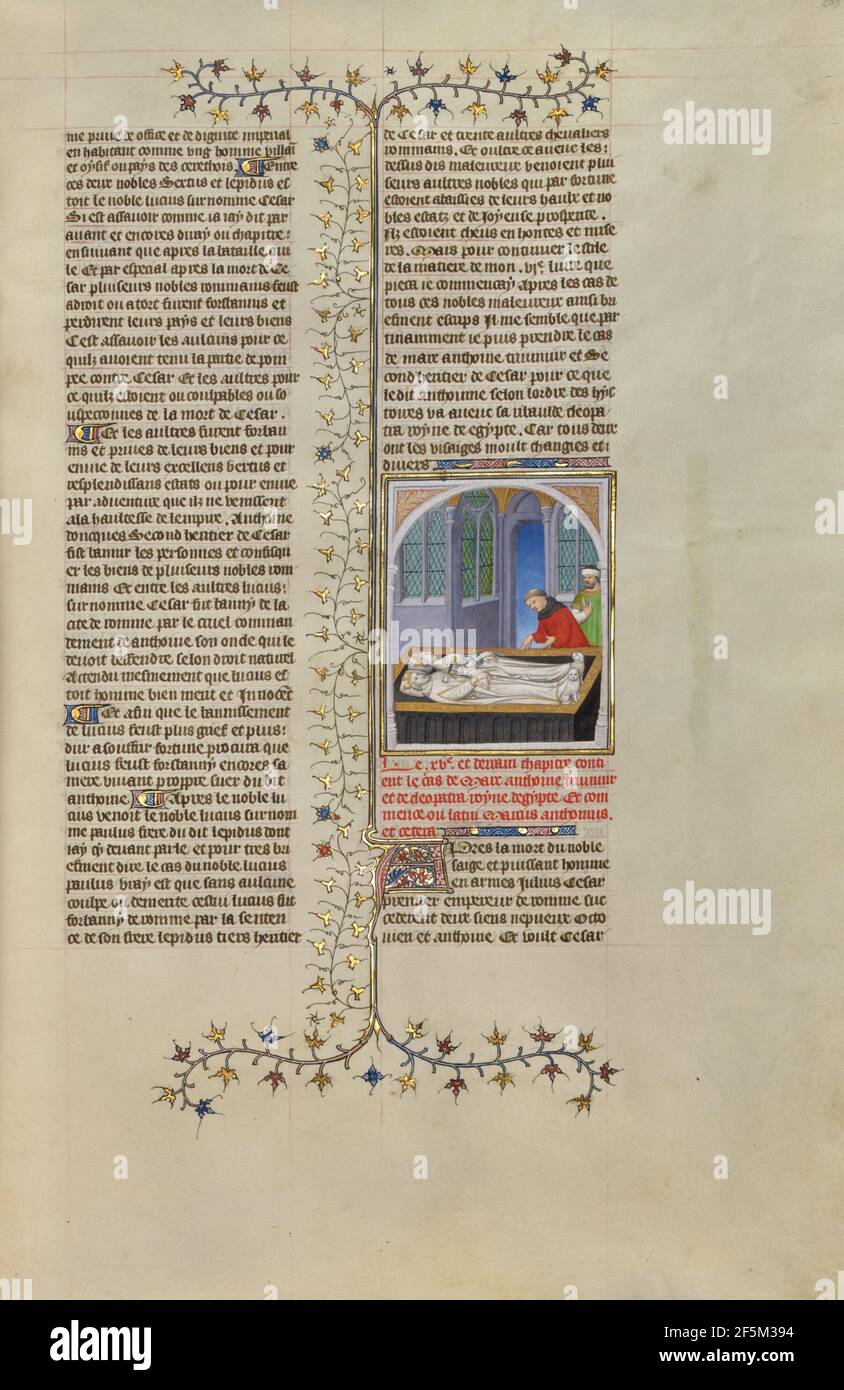 me prive de office et de dignite imperial
en habitant comme ung homme villai
et oysif ou pays des cerethois. Entre
ces deux nobles Sertus et lepidus es
toit le noble lucius surnomme Cesar
Si est assavoir comme ia iay dit par
avant et encores diray ou chapitre
ensuivant que apres la bataille
le Et par especial apres la mort de Ce
sar pluiseurs nobles rommains feust
a droit ou a tort furent forbannis et
perdirent leurs pays et leurs biens
Cest assavoir les aulcuns pour ce
quilz avoient tenu la partie de pom
pee contre Cesar Et les aultres pour
ce quilz estoient ou coulpables ou so
uspeconnes de la mort de Cesar.
Et les aultres furent forban
nis et prives de leurs biens et pour
envie de leurs excellens vertus et
resplendissans estats ou pour envie
par adventure que ilz ne venissent
a la haultesse de lempire. Anthoine
doncques Second heritier de Cesar
fist banir les personnes et confisqu
er les biens de pluiseurs nobles rom
mains Et entre les aultres lucius
surnomme Cesar fut banny de la
cite de romme par le cruel comman
dement de anthoine son oncle qui le
devoit deffendre selon droit naturel
Actendu mesmement que lucius es
toit homme bien meur et Innocet
Et afin que le bannissement
de lucius feust plus grief et plus
dur a souffrir fortune procura que
lucius feust forbanny encores sa
mere vivant proppre suer du dit
anthoine Apres le noble lu
cius venoit le noble lucius surnom
me paulus frere du dit lepidus dont
iay cy devant parle et pour tres bri
efment dire le cas du noble lucius
paulus vray est que sans aulcune
coulpe ou demerite cestui lucius fut
forbanny de romme par la senten
ce de son frere lepidus tiers heritier
de Cesar et trente aultres chevaliers
rommains. Et oultre ce avecc les
dessus dis maleureux venoient plui
seurs aultres nobles qui par fortune
estoient abaissies de leurs haulx et no
bles estatz et de joyeuse prosperite.
Ilz estoient cheus en hontes et mise
res. Mais pour continuer le stile
de la matiere de mon .vie. livre que
pieca ie commencay apres les cas de
tous ces nobles maleureux ainsi bri
efment escrips Il me semble que par
tinamment ie puis prendre le cas
de marc anthoine triumvir et Se
cond heritier de Cesar pour ce que
ledit anthoine selon lordre des hys
toires va avecc sa ribaulde cleopa
tra royne de egypte. Car tous deux
ont les visaiges moult changies et
divers
Le .xve. et derrain chapitre conti
ent le cas de Marc anthoine triumvir
et de cleopatra royne degypte Et com
mence ou latin Marcus anthonius.
et cetera
Apres la mort du noble
saige et puissant homme
en armes Julius Cesar
premier empereur de romme suc
cederent deux siens nepveux Octo
vien et anthoine Et voult Cesar
alamy
Image ID: 2F5M394
www.alamy.com